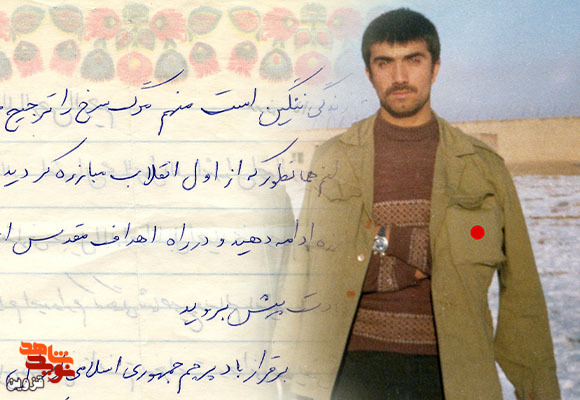 زندگی ننگین است منهم مرگ سرخ را ترجیح
همانطور که از اول انقلاب مبارزه کردید
ادامه دهید و در راه اهداف مقدس
پیش بروید
برقرار باد پرچم جمهوری اسلامی
نوید شاهد
قزوین